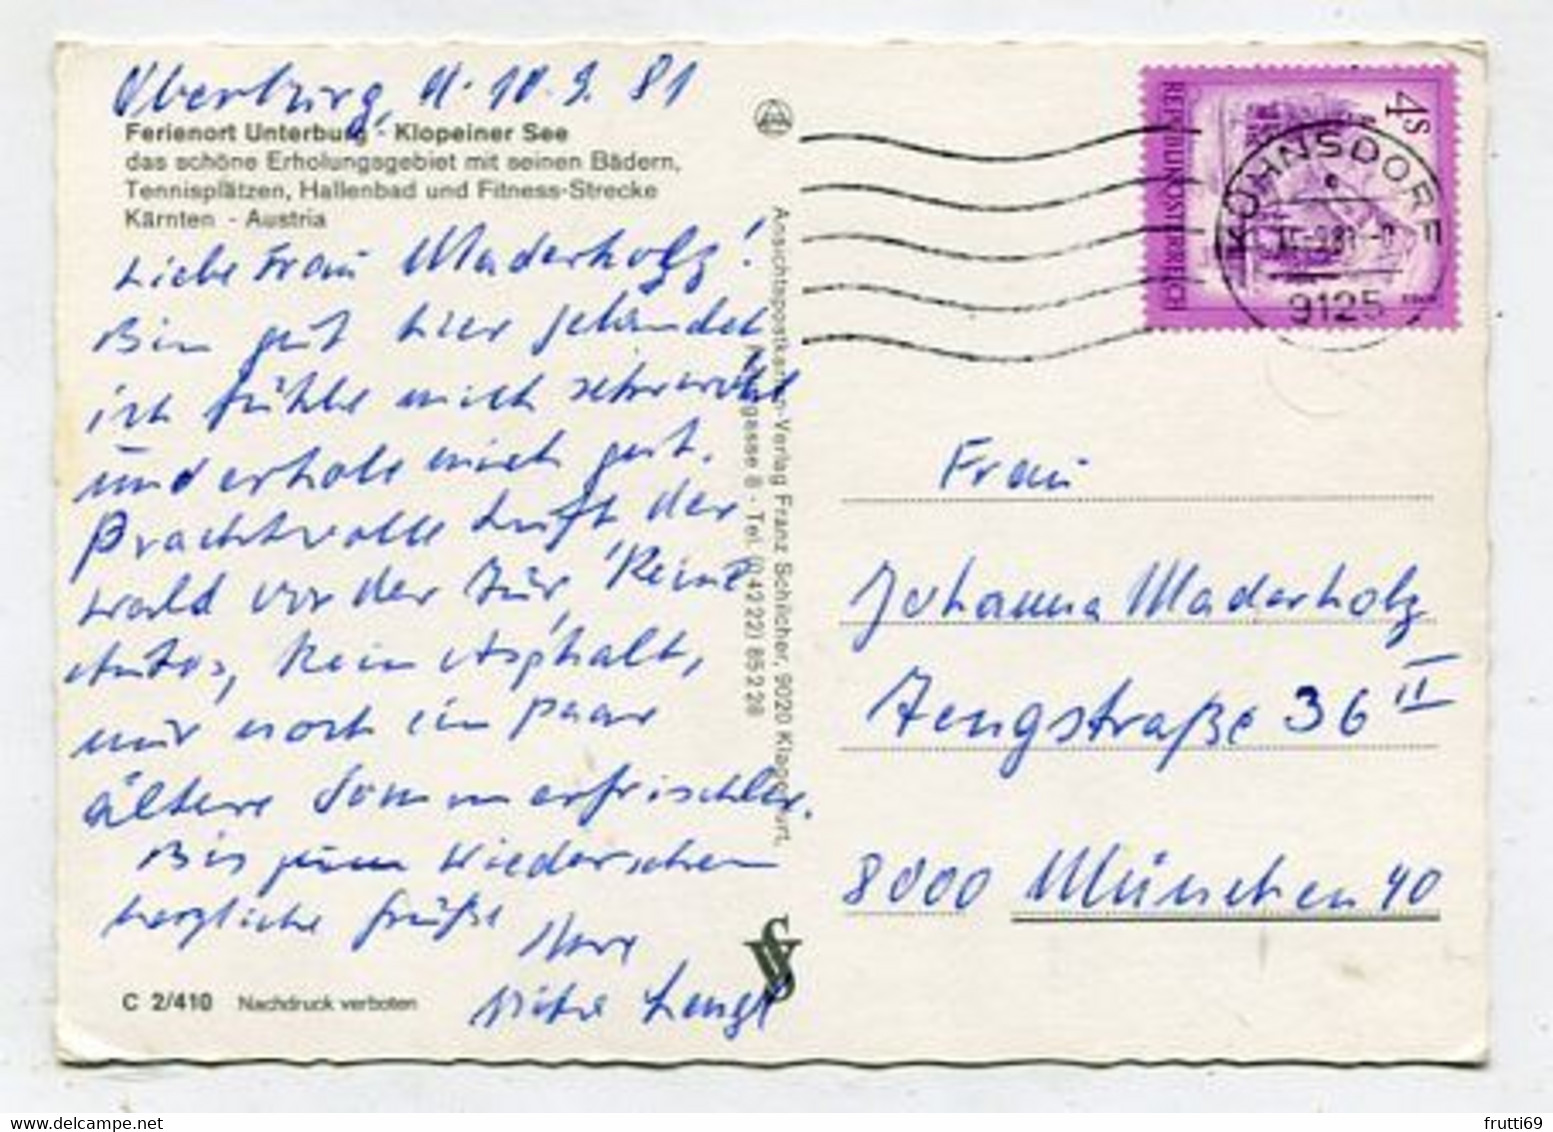 Oberburg, d. 10.9.81
Ferienort Unterburg - Klopeiner See
das schöne Erholungsgebiet mit seinen Bädern,
Tennisplätzen, Hallenbad und Fitness-Strecke
Kärnten - Austria
Liebe Frau Maderholz!
Bin gut hier gelandet,
ich fühle mich sehr wohl
und erhole mich gut.
Prachtvolle Luft der
Wald vor der Tür, Keine
Autos, kein Asphalt,
nur noch ein paar
ältere Sommerfrischler.
Bis zum Wiedersehen
herzliche Grüße
Ihre
C 2/410 Nachdruck verboten
Ansichtspostkarten-Verlag Franz Schilcher, 9020 Klagenfurt,
gasse 8 - Tel. (04222) 85228
REPUBLIK ÖSTERREICH
4S
KÜHNSDORF
9125
Frau
Johanna Maderholz
Zengstraße 36 II
8000 München 40
frutti69